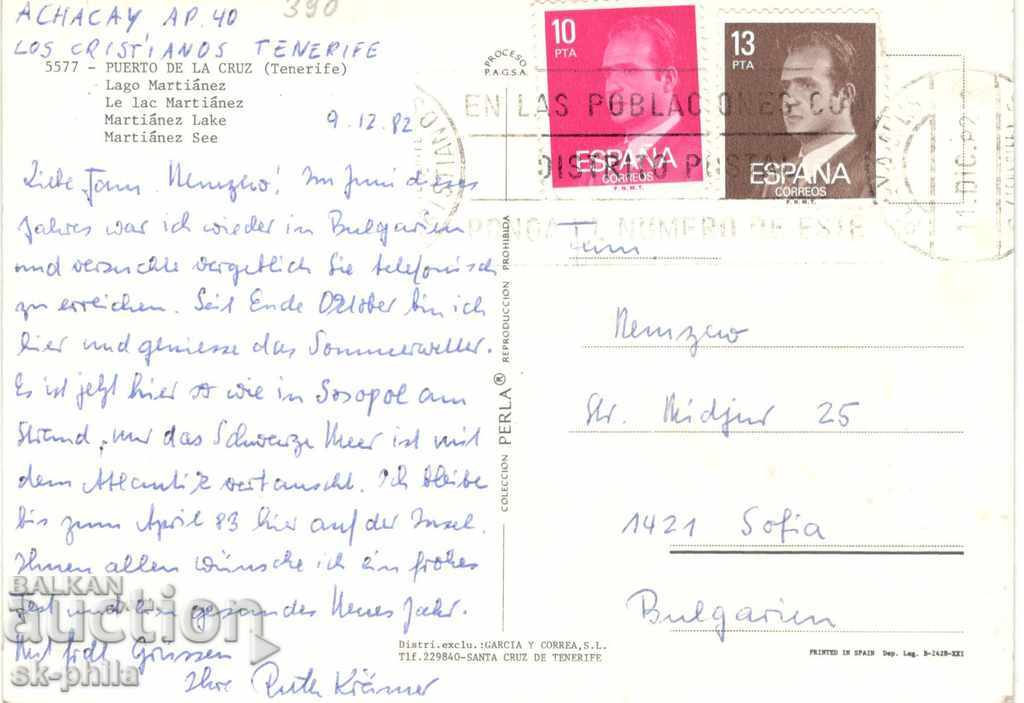 ACHACAY AP. 40
390
LOS CRISTIANOS TENERIFE
5577 - PUERTO DE LA CRUZ (Tenerife)
Lago Martiánez
Le lac Martiánez
Martiánez Lake
Martiánez See
9.12.82
Liebe Fam. Nemzew! Im Juni dieses
Jahres war ich wieder in Bulgarien
und versuchte vergeblich Sie telefonisch
zu erreichen. Seit Ende Oktober bin ich
hier und geniesse das Sommerwetter.
Es ist jetzt hier so wie in Sosopol am
Strand, nur das Schwarze Meer ist mit
dem Atlantik vertauscht. Ich bleibe
bis zum April 83 hier auf der Insel.
Ihnen allen wünsche ich ein frohes
Fest und ein gesundes Neues Jahr.
Mit frdl. Grüssen
Ihre Ruth Krämer
PROCESO
P.A.G.S.A.
10
PTA
ESPAÑA
CORREOS
F.N.M.T.
13
PTA
ESPAÑA
CORREOS
F.N.M.T.
EN LAS POBLACIONES CON
DISTRITO POSTAL
PONGA EL NUMERO DE ESTE
11. DIC. 82
COLECCION PERLA® REPRODUCCION PROHIBIDA
Fam.
Nemzew
Str. Midjur 25
1421 Sofia
Bulgarien
Distri.exclu.:GARCIA Y CORREA,S.L.
Tlf.229840-SANTA CRUZ DE TENERIFE
PRINTED IN SPAIN Dep. Leg. B-2428-XXI
BALKAN
auction
sk-phila